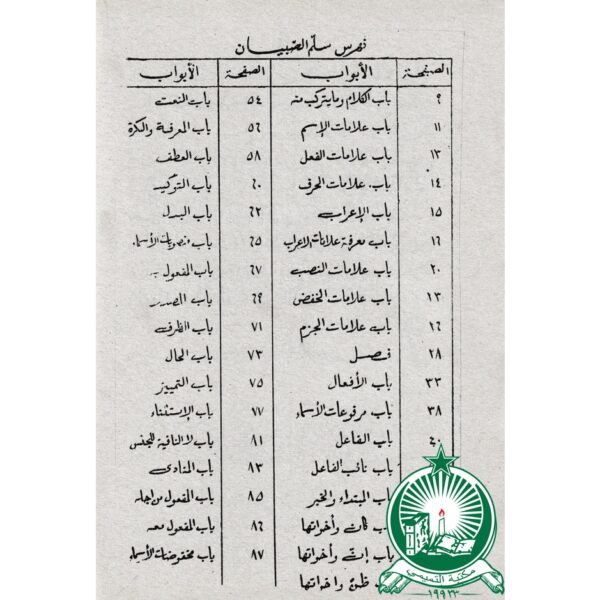 فهرس سلّم الصبيان
الصفحة الأبواب الصفحة الأبواب
٩ باب الكلام وما يتركب منه ٥٤ باب النعت
١١ باب علامات الإسم ٥٦ باب المعرفة والنكرة
١٣ باب علامات الفعل ٥٨ باب العطف
١٤ باب علامات الحرف ٦٠ باب التوكيد
١٥ باب الإعراب ٦٢ باب البدل
١٦ باب معرفة علامات الاعراب ٦٥ باب منصوبات الأسماء
٢٠ باب علامات النصب ٦٧ باب المفعول به
٢٣ باب علامات الخفض ٦٩ باب المصدر
٢٦ باب علامات الجزم ٧١ باب الظرف
٢٨ فصل ٧٣ باب الحال
٣٣ باب الأفعال ٧٥ باب التمييز
٣٨ باب مرفوعات الأسماء ٧٧ باب الإستثناء
٤٠ باب الفاعل ٨١ باب لا النافية للجنس
باب نائب الفاعل ٨٣ باب المنادى
باب المبتداء والخبر ٨٥ باب المفعول من اجله
كان وأخواتها ٨٦ باب المفعول معه
باب إنّ وأخواتها ٨٧ باب مخفوضات الأسماء
ظنّ واخواتها
مكتبة التميمي
١٩٩٣